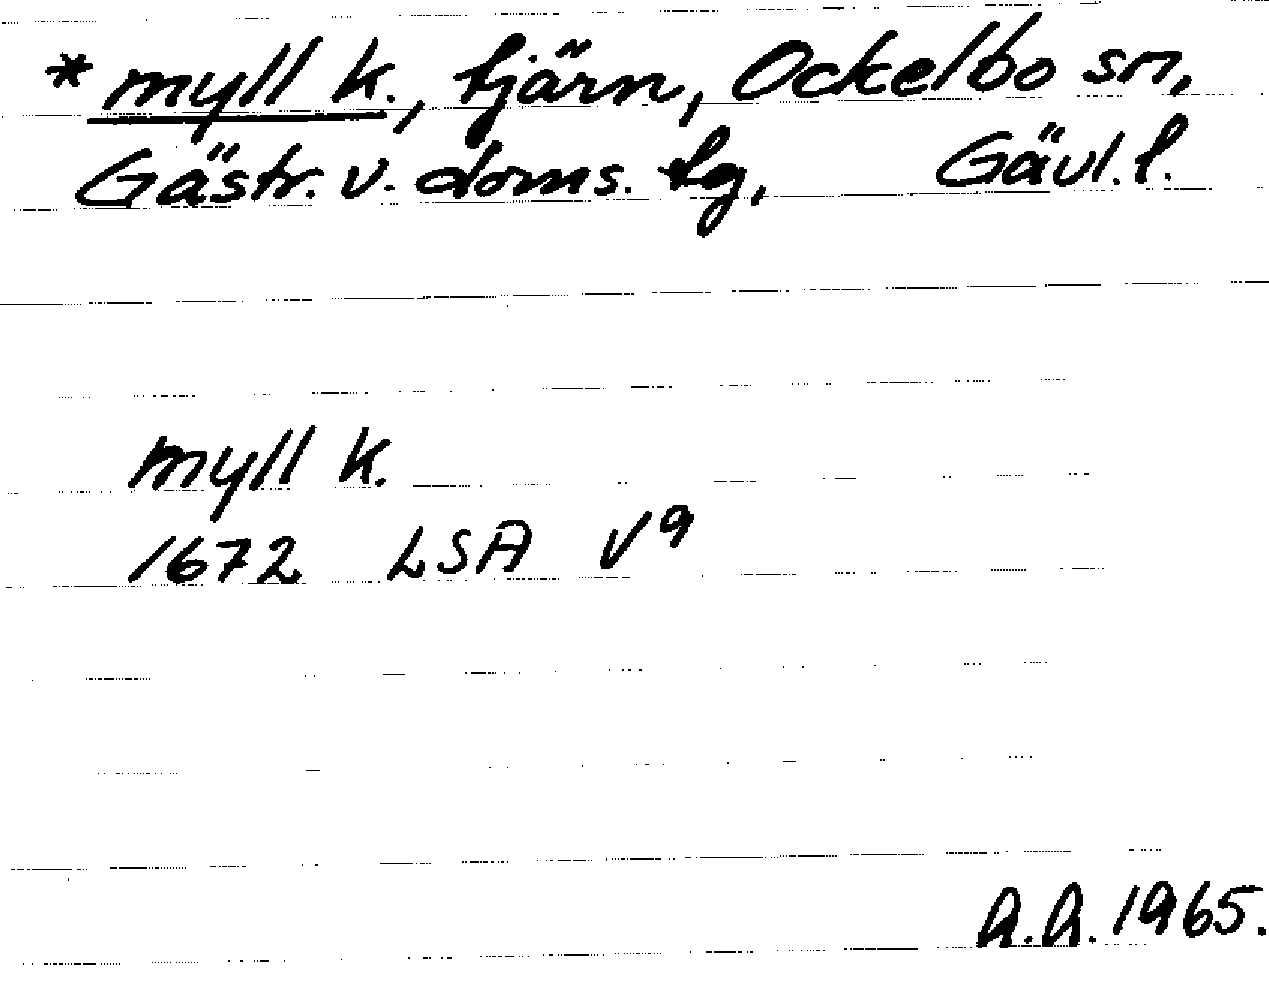 * myll k., tjärn, Ockelbo sn,
Gästr. v. doms. tg, Gävl. l.
myll k.
1672 LSA V9
A.A. 1965.